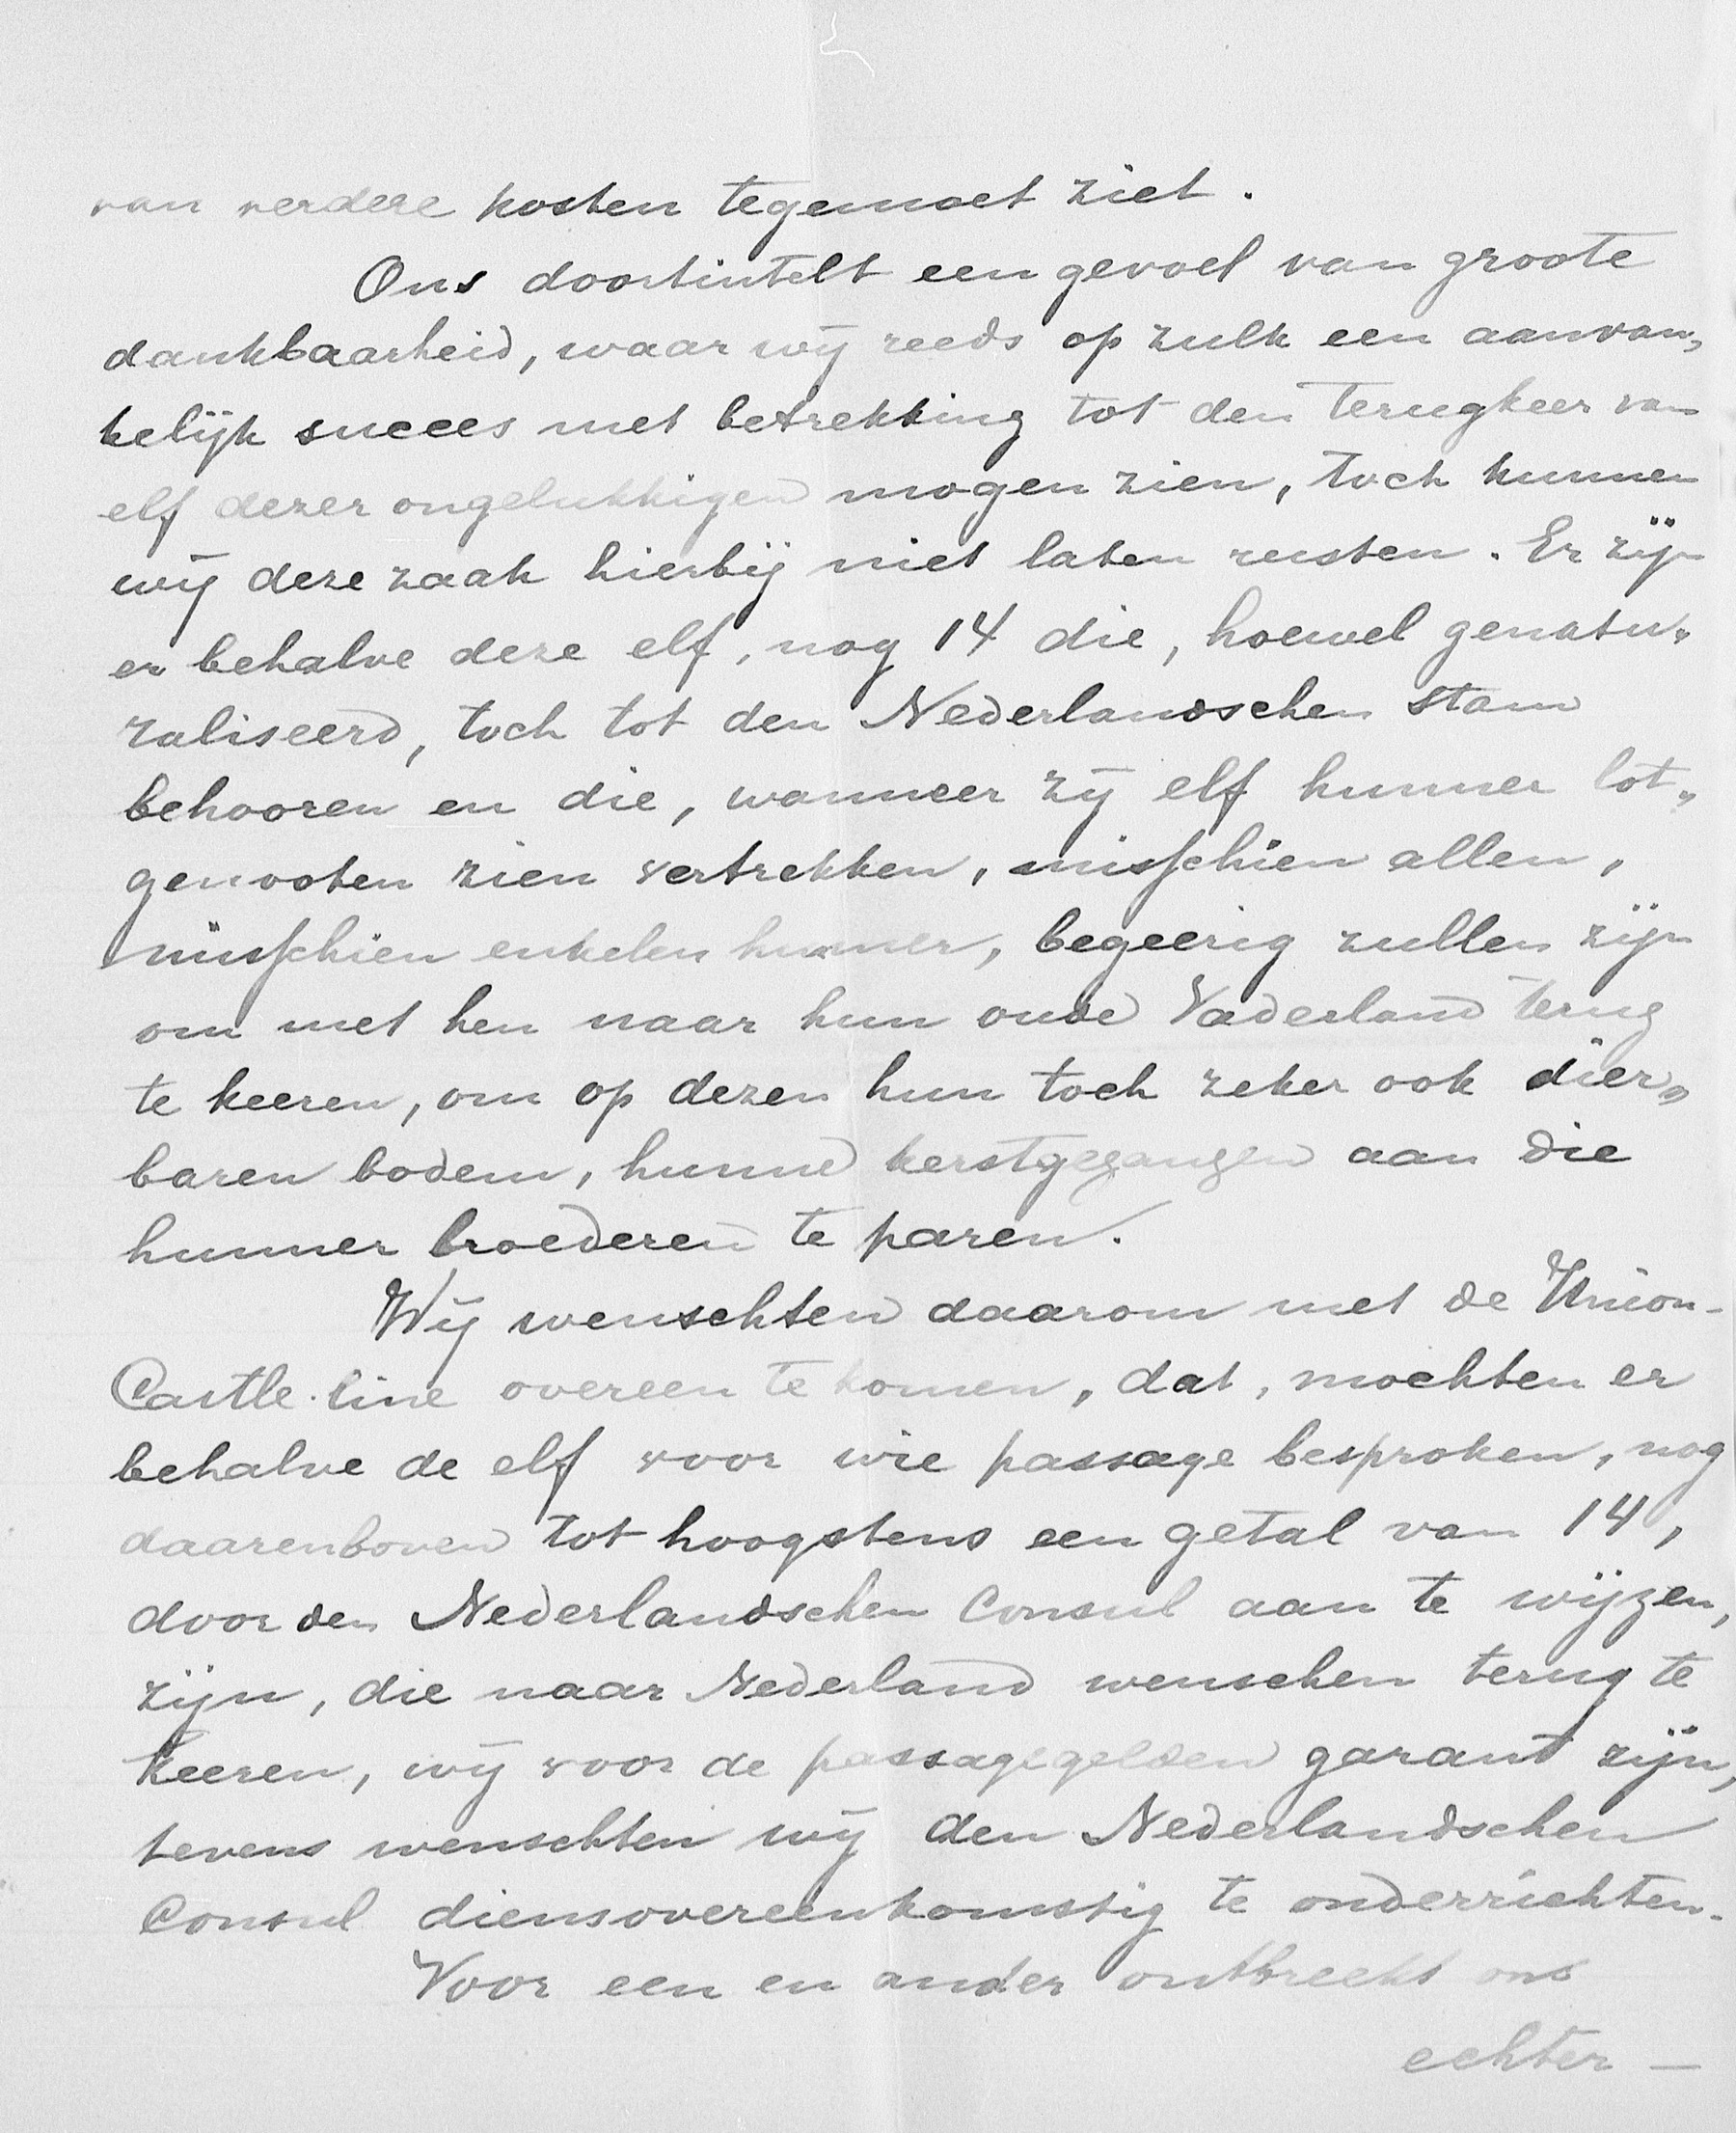 van verdere kosten tegemoet ziet.
Ons doortintelt een gevoel van groote
dankbaarheid, waar wij reeds op zulk een aanvan„
kelijk succes met betrekking tot den terugkeer van
elf dezer ongelukkigen mogen zien, toch kunnen
wij deze zaak hierbij niet laten rusten. Er zijn
er behalve deze elf, nog 14 die, hoewel genatu„
raliseerd, toch tot den Nederlandschen stam
behooren en die, wanneer zij elf hunner lot„
genooten zien vertrekken, misschien allen,
misschien enkelen hunner, begeerig zullen zijn
om met hen naar hun oude Vaderland terug
te keeren, om op dezen hun toch zeker ook dier„
baren bodem, hunne kerstgezangen aan die
hunner broederen te paren.
Wij wenschten daarom met de Union-
Castle-line overeen te komen, dat, mochten er
behalve de elf voor wie passage besproken, nog
daarenboven tot hoogstens een getal van 14,
door den Nederlandschen Consul aan te wijzen,
zijn, die naar Nederland wenschen terug te
keeren, wij voor de passagegelden garant zijn,
tevens wenschten wij den Nederlandschen
Consul diensovereenkomstig te onderrichten.
Voor een en ander ontbreekt ons
echter —